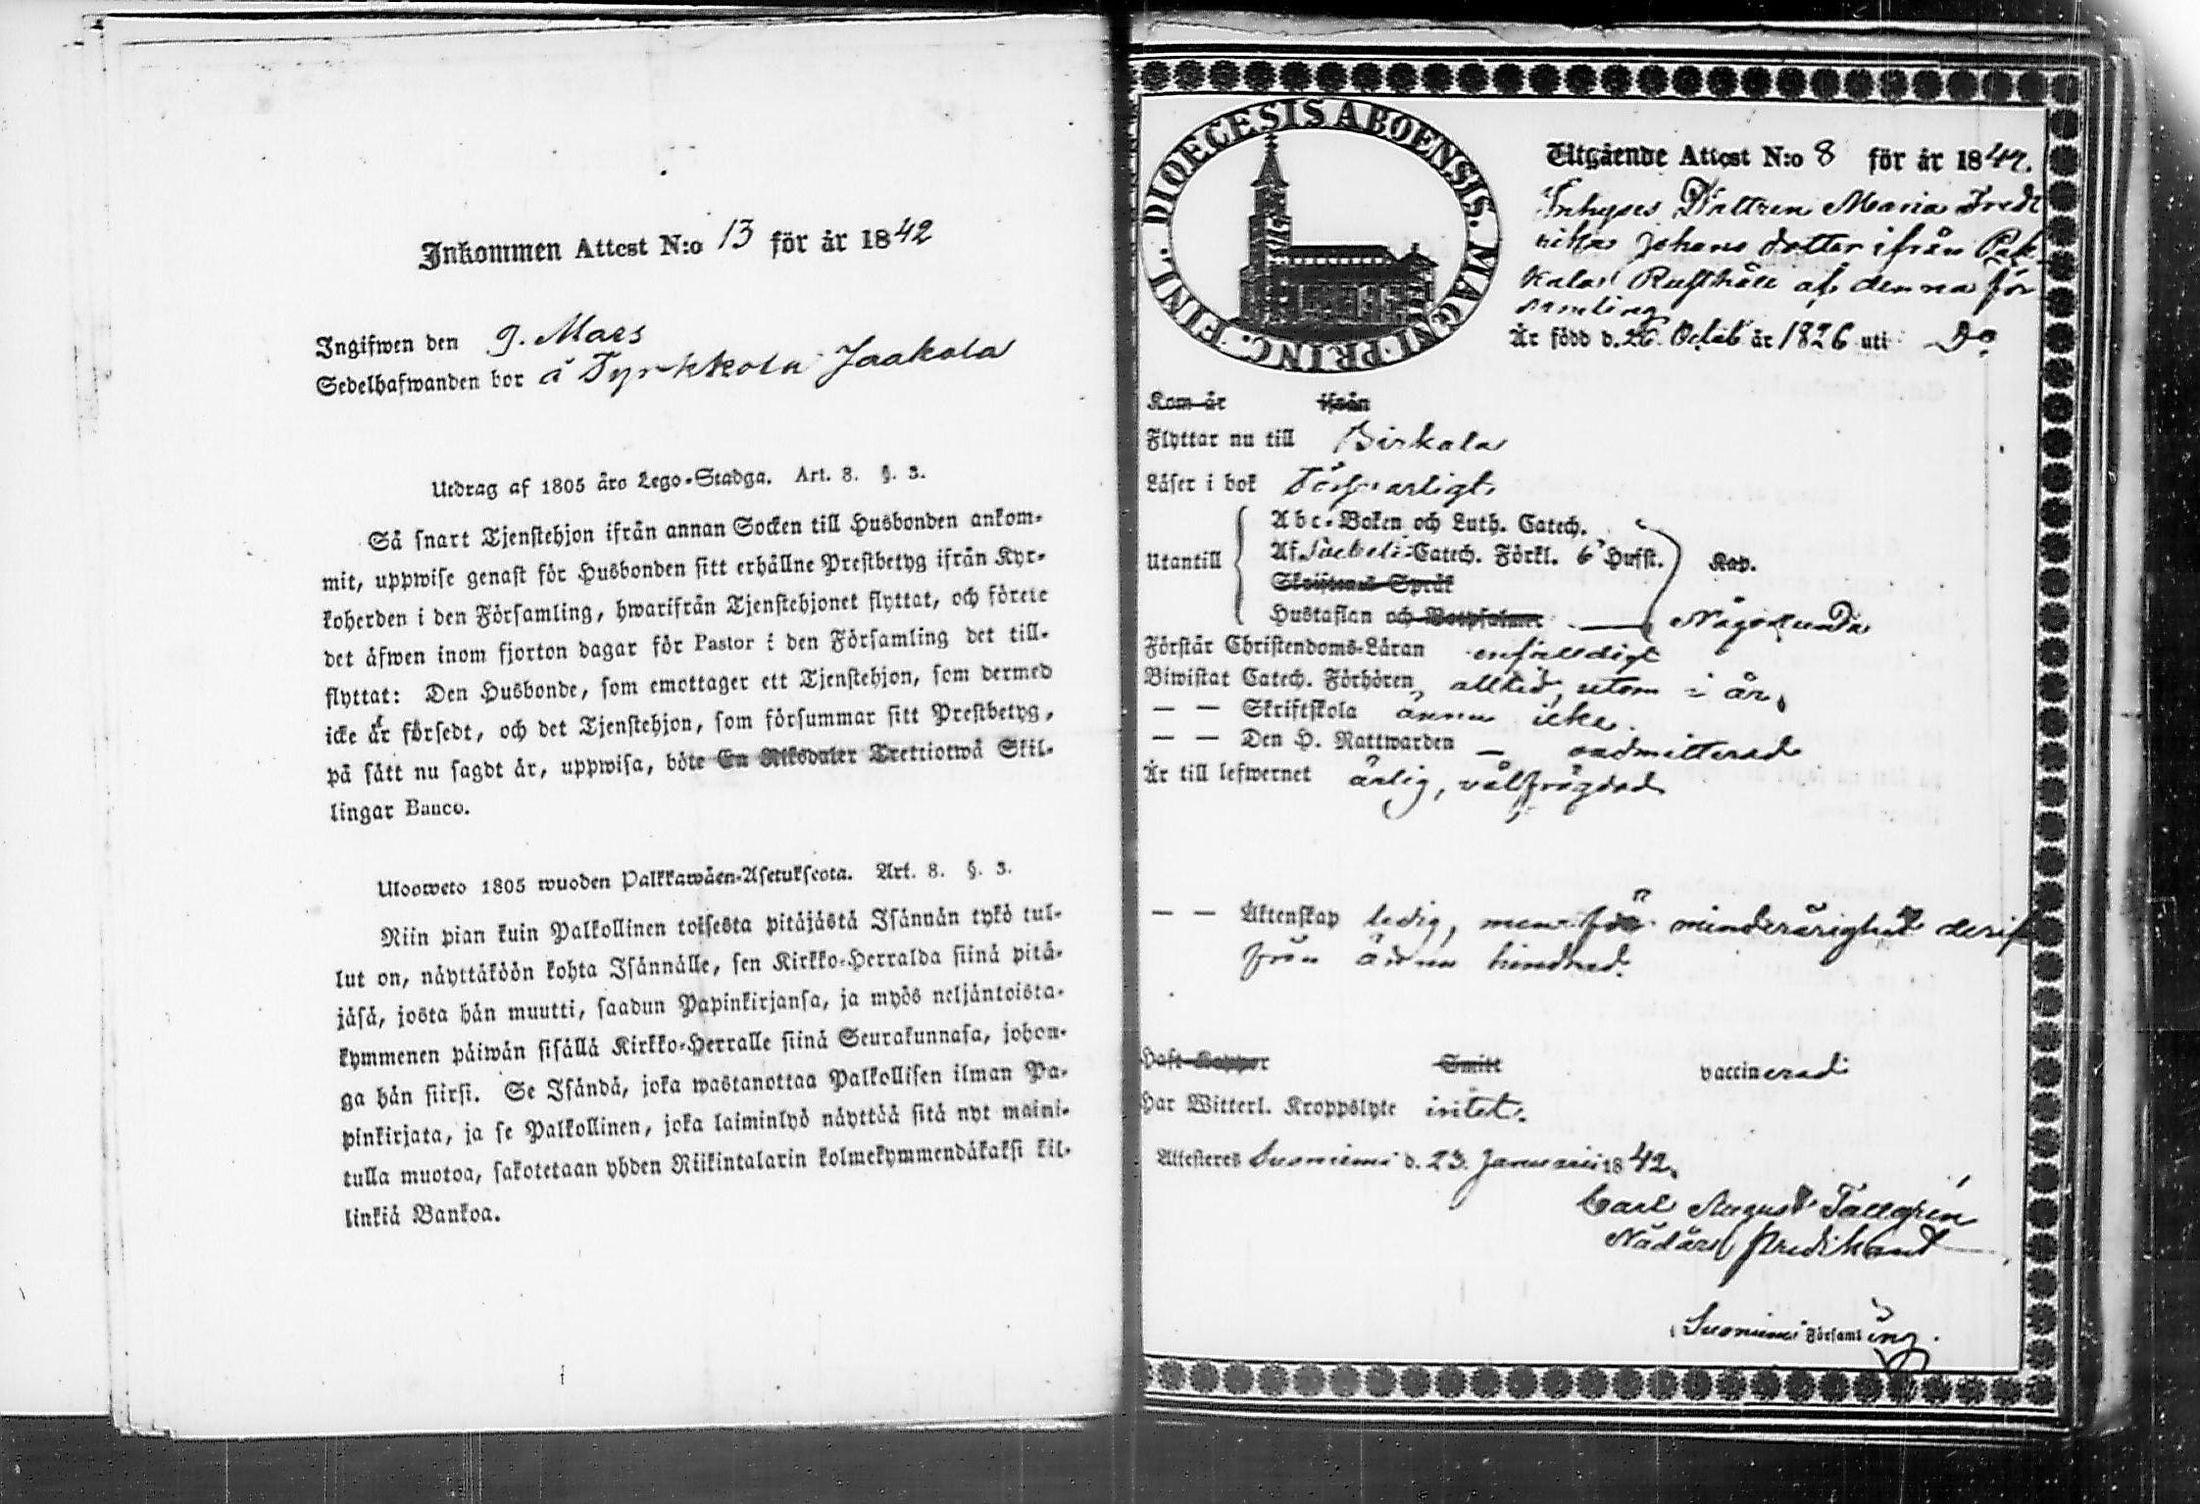 Inkommen Attest N:o 13 för år 1842
Ingifwen den 9. Mars
Sedelhafwanden bor å Tyrkkola Jaakola
Utdrag af 1805 års Lego-Stadga. Art. 8. §. 3.
Så snart Tjenstehjon ifrån annan Socken till Husbonden ankom-
mit, uppwise genast för Husbonden sitt erhållne Prestbetyg ifrån Kyr-
koherden i den Församling, hwarifrån Tjenstehjonet flyttat, och förete
det äfwen inom fjorton dagar för Pastor i den Församling det till-
flyttat: Den Husbonde, som emottager ett Tjenstehjon, som dermed
icke är försedt, och det Tjenstehjon, som försummar sitt Prestbetyg,
på sätt nu sagdt är, uppwisa, böte En Riksdaler Trettiotwå Skil-
lingar Banco.
Ulosweto 1805 wuoden Palkkawäen-Asetuksesta. Art. 8. §. 3.
Niin pian kuin Palkollinen toisesta pitäjästä Isännän tykö tul-
lut on, näyttäköön kohta Isännälle, sen Kirkko-Herralda siinä pitä-
jäsä, josta hän muutti, saadun Papinkirjansa, ja myös neljäntoista-
kymmenen päiwän sisällä Kirkko-Herralle siinä Seurakunnasa, johon-
ga hän siirsi. Se Isändä, joka wastanottaa Palkollisen ilman Pa-
pinkirjata, ja se Palkollinen, joka laiminlyö näyttää sitä nyt maini-
tulla muotoa, sakotetaan yhden Riikintalarin kolmekymmendäkaksi kil-
linkiä Bankoa.
DIOECESIS ABOENSIS. MAGNI PRINC. FINL.
Utgående Attest N:o 8 för år 1842.
Inhyses Dottren Maria Fred
rika Johans dotter ifrån Pek-
kala Rusthåll af denna för
samling
Är född d. 26 Octob år 1826 uti Do
Kom år ifrån
Flyttar nu till Birkala
Läser i bok Försvarligt
Abc-Boken och Luth. Catech.
Utantill Af Svebelii Catech. Förkl. 6 Hufst. Kap.
Skriftenes Språk
Hustaflan och Botpsalmer Någorlunda
Förstår Christendoms-Läran enfaldigt
Biwistat Catech. Förhören alltid, utom i år.
— — Skriftskola ännu icke.
— — Den H. Nattwarden — oadmitterad
Är till lefwernet ärlig, välfrägdad
— — Äktenskap ledig, men för minderårighet derif
från ännu hindrad.
Haft Koppor Smitt vaccinerad
Har Witterl. Kroppslyte intet.
Attesteres Suoniemi d. 23. Januarii 1842.
Carl August Tallgrén
Nådårs Predikant
Suoniemi Församling.